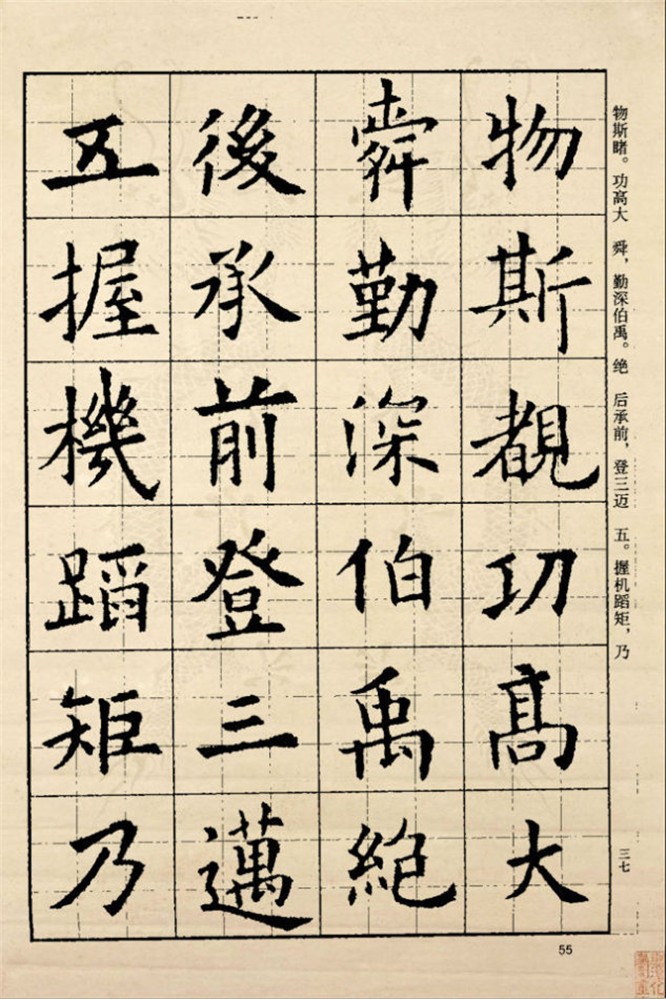 物斯睹。功高大 舜，勤深伯禹。绝 后承前，登三迈 五。握机蹈矩，乃
物斯覩功髙大
舜勤深伯禹絕
後承前登三邁
五握機蹈矩乃
三七
55